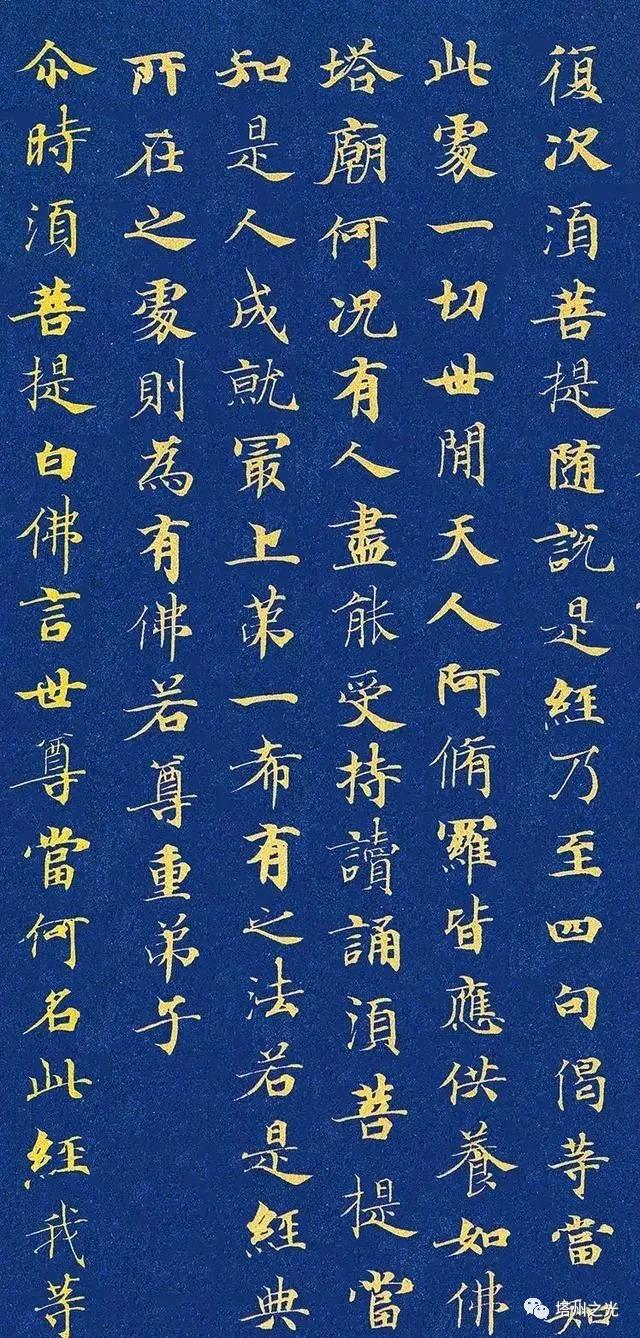 復次湏菩提随說是經乃至四句偈等當知
此處一切世閒天人阿脩羅皆應供養如佛
塔廟何況有人盡能受持讀誦湏菩提當
知是人成就冣上苐一希有之法若是經典
所在之處則為有佛若尊重弟子
尒時湏菩提白佛言世尊當何名此經我等
塔州之光